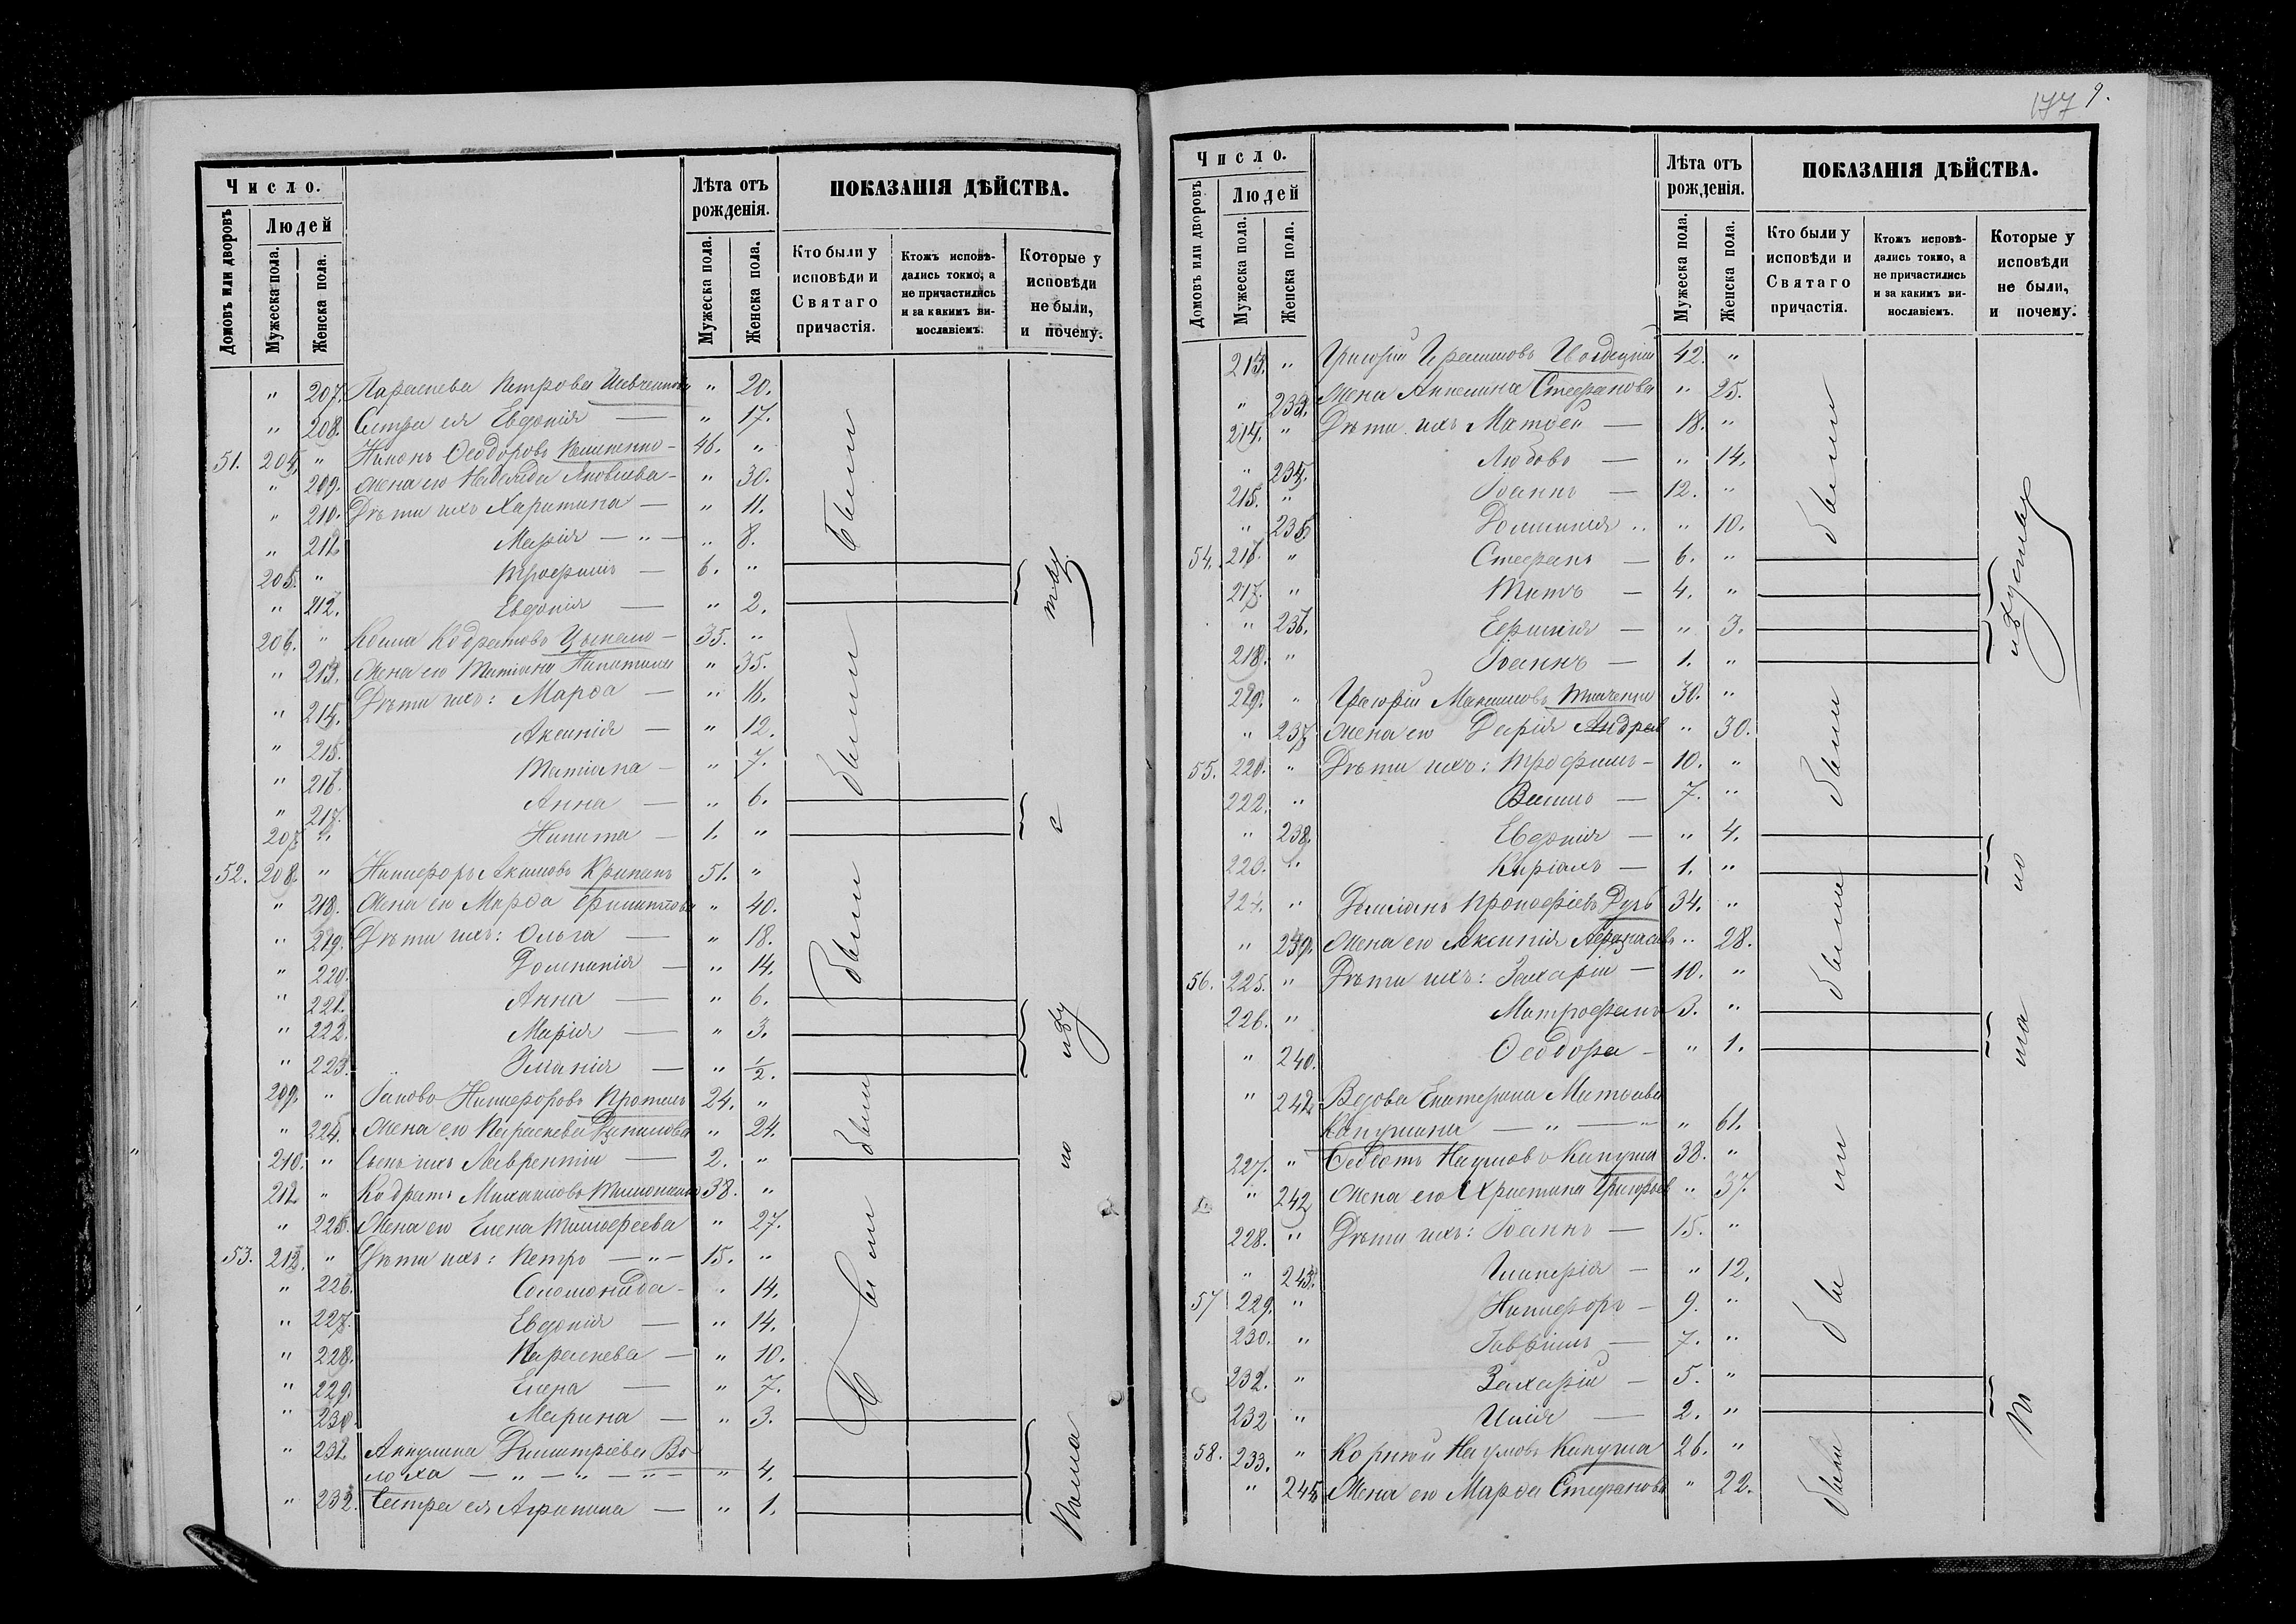 Число.
Лѣта отъ рожденія.
ПОКАЗАНІЯ ДѢЙСТВА.
Домовъ или дворовъ
Людей
Мужеска пола.
Женска пола.
Мужеска пола.
Женска пола.
Кто были у исповѣди и Святаго причастія.
Ктожъ исповѣ-дались токмо, а не причастились и за какимъ ви-нославіемъ.
Которые у исповѣди не были, и почему.
" 207. Параскева Петрова " 20.
" 208. Сестра ея Евдокія — " 17.
51. 204. " Никонъ Ѳеодоровъ 46. "
" 209. Жена его Яковлева " 30.
" 210. Дѣти ихъ Харитина — " 11.
" 211. Марія — " — " 8.
205. " Трофимъ — 6. "
" 212. Евдокія — " 2.
206. " Кодратовъ 35. "
" 213. Жена его Татіана Никитина " 35.
" 214. Дѣти ихъ: Марѳа — " 16.
" 215. Аксинія — " 12.
" 216. Татіана — " 7.
" 217. Анна — " 6.
207. " Никита — 1. "
52. 208. " Никифоръ Акимовъ 51. "
" 218. Жена его Марѳа " 40.
" 219. Дѣти ихъ: Ольга — " 18.
" 220. Домникія — " 14.
" 221. Анна — " 6.
" 222. Марія — " 3.
" 223. — " ½.
209. " Іаковъ Никифоровъ 24. "
" 224. Жена его Параскева " 24.
210. " Сынъ ихъ Лаврентій — 2. "
211. " Кодратъ Михаиловъ 38. "
" 225. Жена его Елена Тимоѳеева " 27.
53. 212. " Дѣти ихъ: Петръ — " — 15. "
" 226. Соломонида - " 14.
" 227. Евдокія — " 14.
" 228. Параскева — " 10.
" 229. Елена — " 7.
" 230. Марина — " 3.
" 231. Акулина Димитріева Во-
лоха — " — " — " — " 4.
" 232. Сестра ея Агрипина — " 1.
Были
были
были
были
были
177 9.
Число.
Лѣта отъ рожденія.
ПОКАЗАНІЯ ДѢЙСТВА.
Домовъ или дворовъ
Людей
Мужеска пола.
Женска пола.
Мужеска пола.
Женска пола.
Кто были у исповѣди и Святаго причастія.
Ктожъ исповѣ-дались токмо, а не причастились и за какимъ ви-нославіемъ.
Которые у исповѣди не были, и почему.
213. " Григорій 42. "
" 233. Жена Стефанова " 25.
214. " Дѣти ихъ Матѳей — 18. "
" 234. Любовь — " 14.
215. " Іоаннъ — 12. "
" 235. Домникія " 10.
54. 216. " Стефанъ — 6. "
217. " Титъ — 4. "
" 236. Ефимія — " 3.
218. " Іоаннъ — 1. "
219. " Григорій Максимовъ 30. "
" 237. Жена его Дарія Андреев " 30.
55. 220. " Дѣти ихъ: Трофимъ - 10. "
222. " — 7. "
" 238. Евдокія — " 4.
223. " Киріакъ — 1. "
224. " Даміанъ Прокофіевъ 34. "
" 239. Жена его Аксинія " 28.
56. 225. " Дѣти ихъ: Захарій — 10. "
226. " Митрофанъ 3. "
" 240. Ѳеодора - " 1.
" 241. Вдова Екатерина Матѳіева
— " — " — " 61.
227. " Ѳеодотъ Наумовъ Капуша 38. "
" 242 Жена его Христина Григорьев " 37.
228. " Дѣти ихъ: Іоаннъ — 15. "
" 243. Гликерія — " 12.
57 229. " Никифоръ — 9. "
230. " Гавріилъ — 7. "
231. " Захарій — 5. "
232 " Илія — 2. "
58. 233. " Корній Наумовъ Капуша 26. "
" 244. Жена его Марѳа Стефанова " 22.
были
были
были
были
были